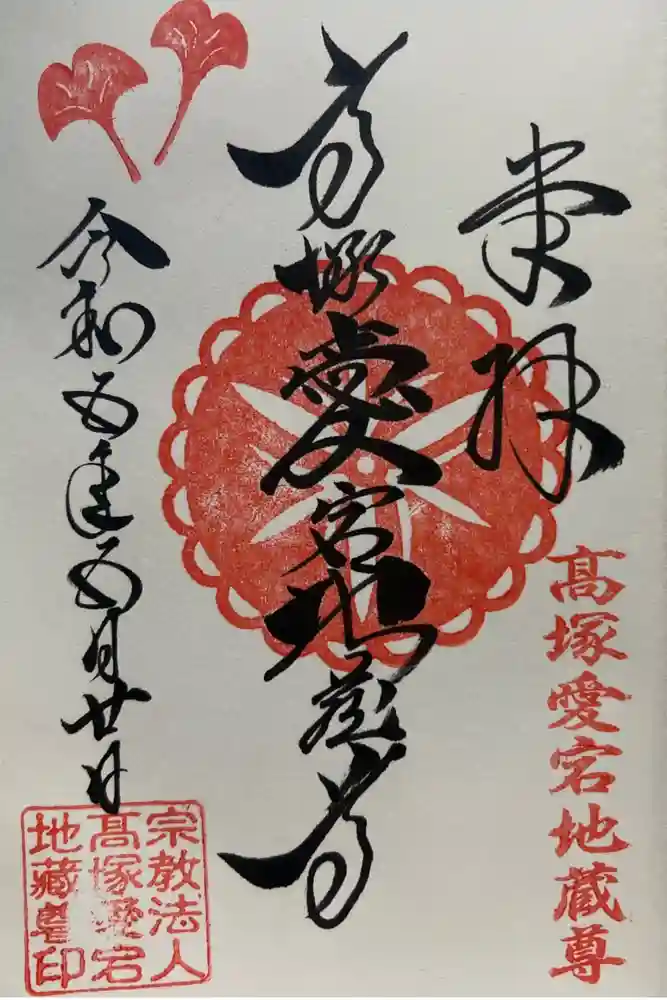 奉拝
髙塚愛宕地蔵尊
高塚愛宕地蔵尊
令和五年五月廿日
宗教法人
髙塚愛宕
地藏尊印